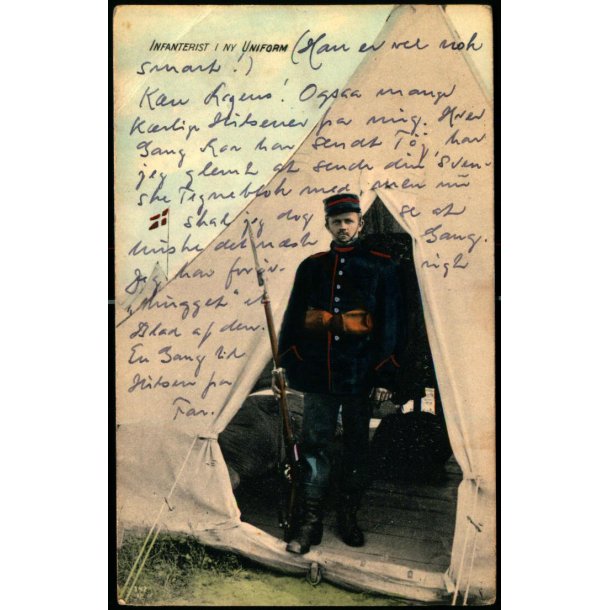 INFANTERIST I NY UNIFORM (Han er vel nok
smart!)
Kære Mogens! Ogsaa mange
Kærlige Hilsener fra mig. Hver
Gang Far har sendt Töj, har
jeg glemt at sende din Sven-
ske Tegneblok med, men nu
skal jeg dog se at
huske det næste Gang.
Jeg har forøv- rigt
"hugget" et
Blad af den.
En Gang til
Hilsen fra
Far.